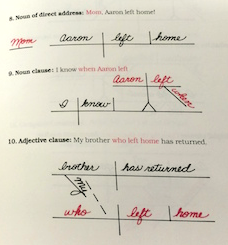 8. Noun of direct address: Mom, Aaron left home!
Mom
Aaron left home
9. Noun clause: I know when Aaron left
Aaron left
when
I know
10. Adjective clause: My brother who left home has returned.
brother has returned
My
who left home